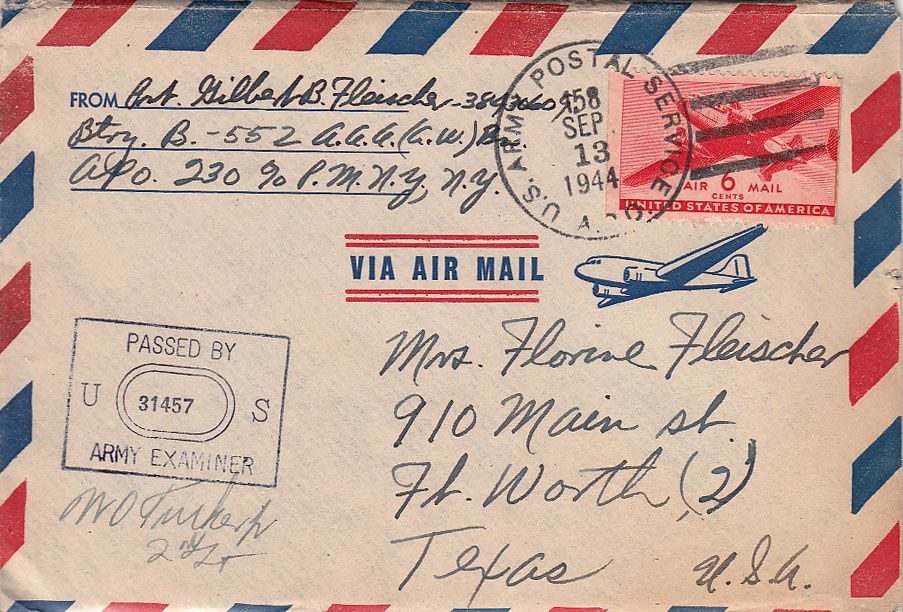 FROM Pvt. Gilbert B. Fleischer
Btry. B. - 552 A.A.A. (A.W.) Bn.
A.P.O. 230 % P.M. N.Y., N.Y.
U.S. ARMY POSTAL SERVICE
SEP
13
1944
AIR 6 MAIL
CENTS
UNITED STATES OF AMERICA
VIA AIR MAIL
PASSED BY
U 31457 S
ARMY EXAMINER
2nd Lt
Mrs. Florine Fleischer
910 Main St.
Ft. Worth (2)
Texas U.S.A.